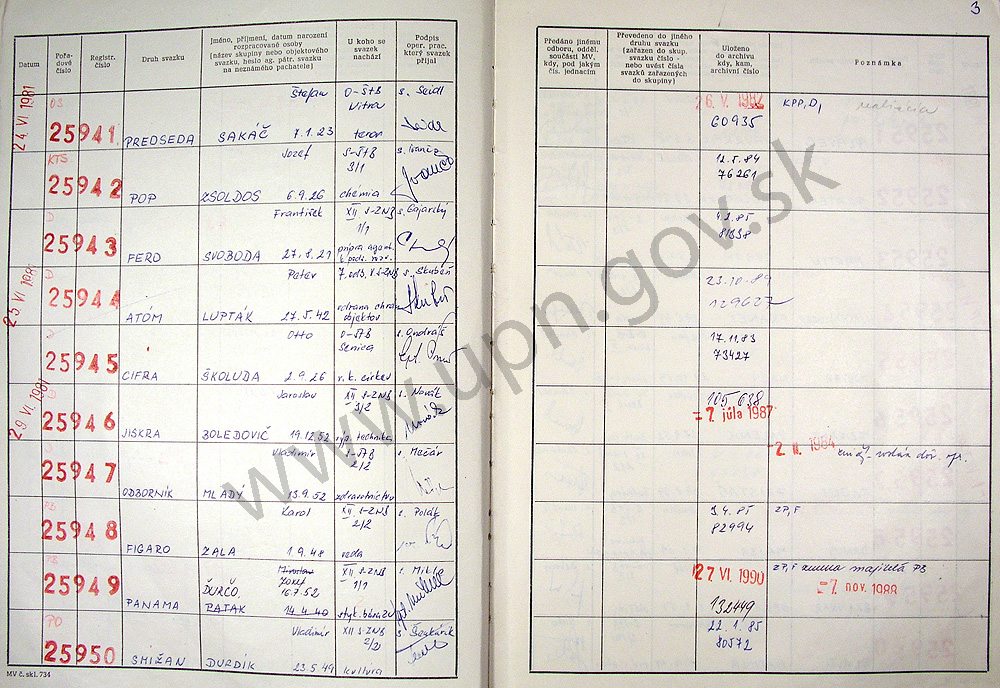 3
Datum
Pořa-
dové
číslo
Registr.
číslo
Druh svazku
Jméno, příjmení, datum narození
rozpracované osoby
(název skupiny nebo objektového
svazku, heslo ag. pátr. svazku
na neznámého pachatele)
U koho se
svazek
nachází
Podpis
oper. prac.
který svazek
přijal
Předáno jinému
odboru, odděl.
součásti MV,
kdy, pod jakým
čís. jednacím
Převedeno do jiného
druhu svazku
(zařazen do skup.
svazku číslo -
nebo uvést čísla
svazků zařazených
do skupiny)
Uloženo
do archivu
kdy, kam,
archivní číslo
Poznámka
24 VI. 1981
DS
25941
PREDSEDA
Štefan
SAKÁČ 7.1.23
O-ŠtB
Nitra
teror
s. Seidl
26. V. 1982
60935
KPP, D,
realizácia
KTS
25942
POP
Jozef
ZSOLDOS 6.9.26
S-ŠtB
3/1
chémia
12.5.84
76261
D
25943
FERO
František
SVOBODA 27.8.21
XII S-ZNB
1/1
4.2.85
81338
25 VI. 1981
D
25944
ATÓM
Peter
LUPTÁK 27.5.42
ochrana
objektov
s. Skubáň
23.10.89
129627
25945
CIFRA
Otto
ŠKOLUDA 2.9.26
O-ŠtB
Senica
r.k. cirkev
s. Ondráš
17.11.83
73427
29 VI. 1981
D
25946
JISKRA
Jaroslav
BOLEDOVIČ 19.12.52
XII S-ZNB
3/2
technika
s. Novák
105 638
- 7. júla 1987
25947
ODBORNÍK
Vladimír
MLADÝ 13.9.52
S-ŠtB
2/2
zdravotníctvo
s. Mačár
- 2. II. 1984
25948
FIGARO
Karol
ZALA 1.9.48
XII S-ZNB
2/2
veda
s. Polák
3.4.85
82994
ZP, F
25949
PANAMA
Miroslav
Jozef
ĎURČO, 16.7.52
PATAK 14.4.40
XII S-ZNB
1/1
27 VI. 1990
132449
ZP, F zmena majiteľa PS
- 7. nov. 1988
PO
25950
SMIŽAN
Vladimír
DURDÍK 23.5.49
XII S-ZNB
2/2
kultúra
22.1.85
80572
MV č. skl. 734
www.upn.gov.sk